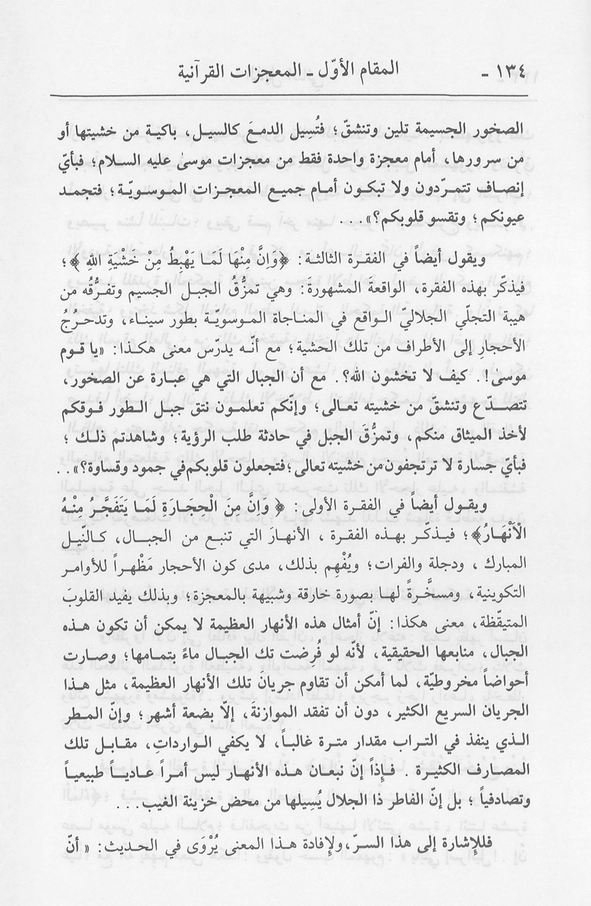 ١٣٤ - المقام الأوّل - المعجزات القرآنية
الصخور الجسيمة تلين وتنشقّ؛ فتُسِيل الدمعَ كالسيل، باكية من خشيتها أو
من سرورها، أمام معجزة واحدة فقط من معجزات موسىٰ عليه السلام؛ فبأيّ
إنصاف تتمرّدون ولا تبكون أمام جميع المعجزات الموسويّة؛ فتجمد
عيونكم؛ وتقسو قلوبكم؟»...
ويقول أيضاً في الفقرة الثالثة: ﴿وَإِنَّ مِنْهَا لَمَا يَهْبِطُ مِنْ خَشْيَةِ اللهِ﴾؛
فيذكّر بهذه الفقرة، الواقعةَ المشهورةَ: وهي تمزُّقُ الجبل الجسيم وتفرُّقُه من
هيبة التجلّي الجلاليّ الواقع في المناجاة الموسويّة بطور سيناء، وتدحرُجُ
الأحجارِ إلى الأطراف من تلك الخشية؛ مع أنّه يدرّس معنى هكذا: «يا قوم
موسىٰ!. كيف لا تخشون الله؟. مع أن الجبال التي هي عبارة عن الصخور،
تتصدّع وتنشقّ من خشيته تعالى؛ وإنّكم تعلمون نتق جبل الطور فوقكم
لأخذ الميثاق منكم، وتمزُّقَ الجبل في حادثة طلب الرؤية؛ وشاهدتم ذلك؛
فبأيّ جسارة لا ترتجفون من خشيته تعالى؛ فتجعلون قلوبكم في جمود وقساوة؟»..
ويقول أيضاً في الفقرة الأولى: ﴿وَإِنَّ مِنَ الْحِجَارَةِ لَمَا يَتَفَجَّرُ مِنْهُ
الْأَنْهَارُ﴾؛ فيذكّر بهذه الفقرة، الأنهارَ التي تنبع من الجبال، كالنّيل
المبارك، ودجلة والفرات؛ ويُفْهِم بذلك، مدى كون الأحجار مَظْهراً للأوامر
التكوينية، ومسخَّرةً لها بصورة خارقة وشبيهة بالمعجزة؛ وبذلك يفيد القلوبَ
المتيقّظة، معنى هكذا: إنّ أمثال هذه الأنهار العظيمة لا يمكن أن تكون هذه
الجبال، منابعها الحقيقية، لأنّه لو فُرِضت تك الجبال ماءً بتمامها؛ وصارت
أحواضاً مخروطيّة، لما أمكن أن تقاوم جريانَ تلك الأنهار العظيمة، مثل هذا
الجريان السريع الكثير، دون أن تفقد الموازنةَ، إلّا بضعة أشهر؛ وإنّ المطر
الذي ينفذ في التراب مقدار مترة غالباً، لا يكفي الوارداتِ، مقابل تلك
المصارف الكثيرة. فإذاً إنّ نبعان هذه الأنهار ليس أمراً عادياً طبيعياً
وتصادفياً؛ بل إنّ الفاطر ذا الجلال يُسِيلها من محض خزينة الغيب...
فللإشارة إلى هذا السرّ، ولإفادة هذا المعنى يُرْوَى في الحديث: «أنّ